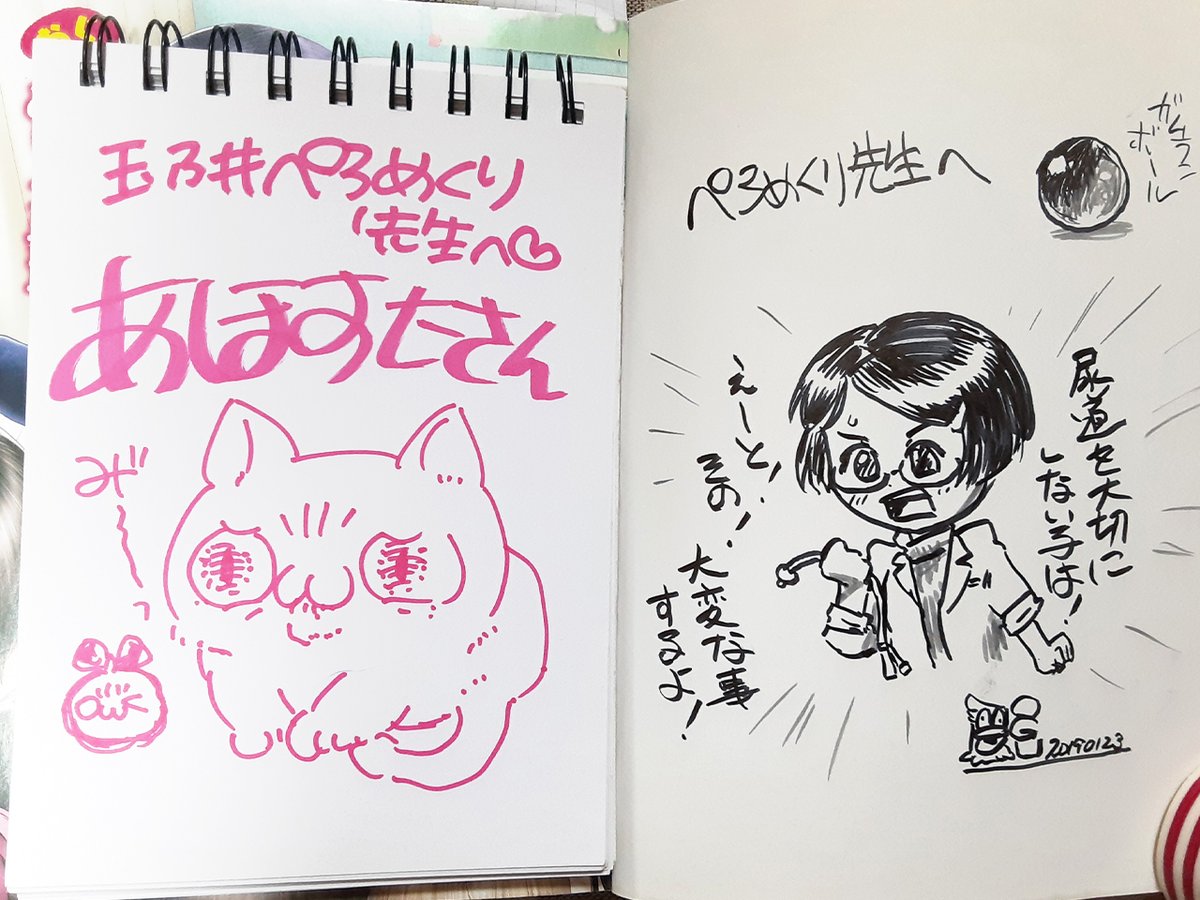 玉乃井ぺろめくり
先生へ♡
あほすたさん
みぎーっ
ぺろめくり先生へ
ガンツ
ボール
尿道を大切に
しない子は!
えーと、
その!
大変な事
するよ!
20190123